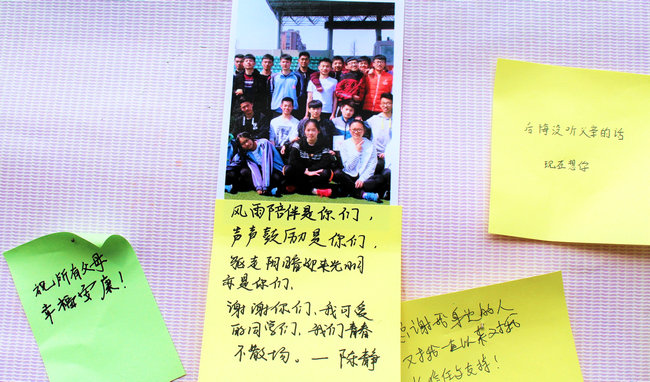 祝所有父母
幸福安康!
风雨陪伴是你们,
声声鼓励是你们,
驱走阴暗迎来光明
亦是你们.
谢谢你们、我可爱
的同学们、我们青春
不散场。—陈静
后悔没听父亲的话
现在想你
感谢我身边的人
对我一直以来对我
信任与支持!